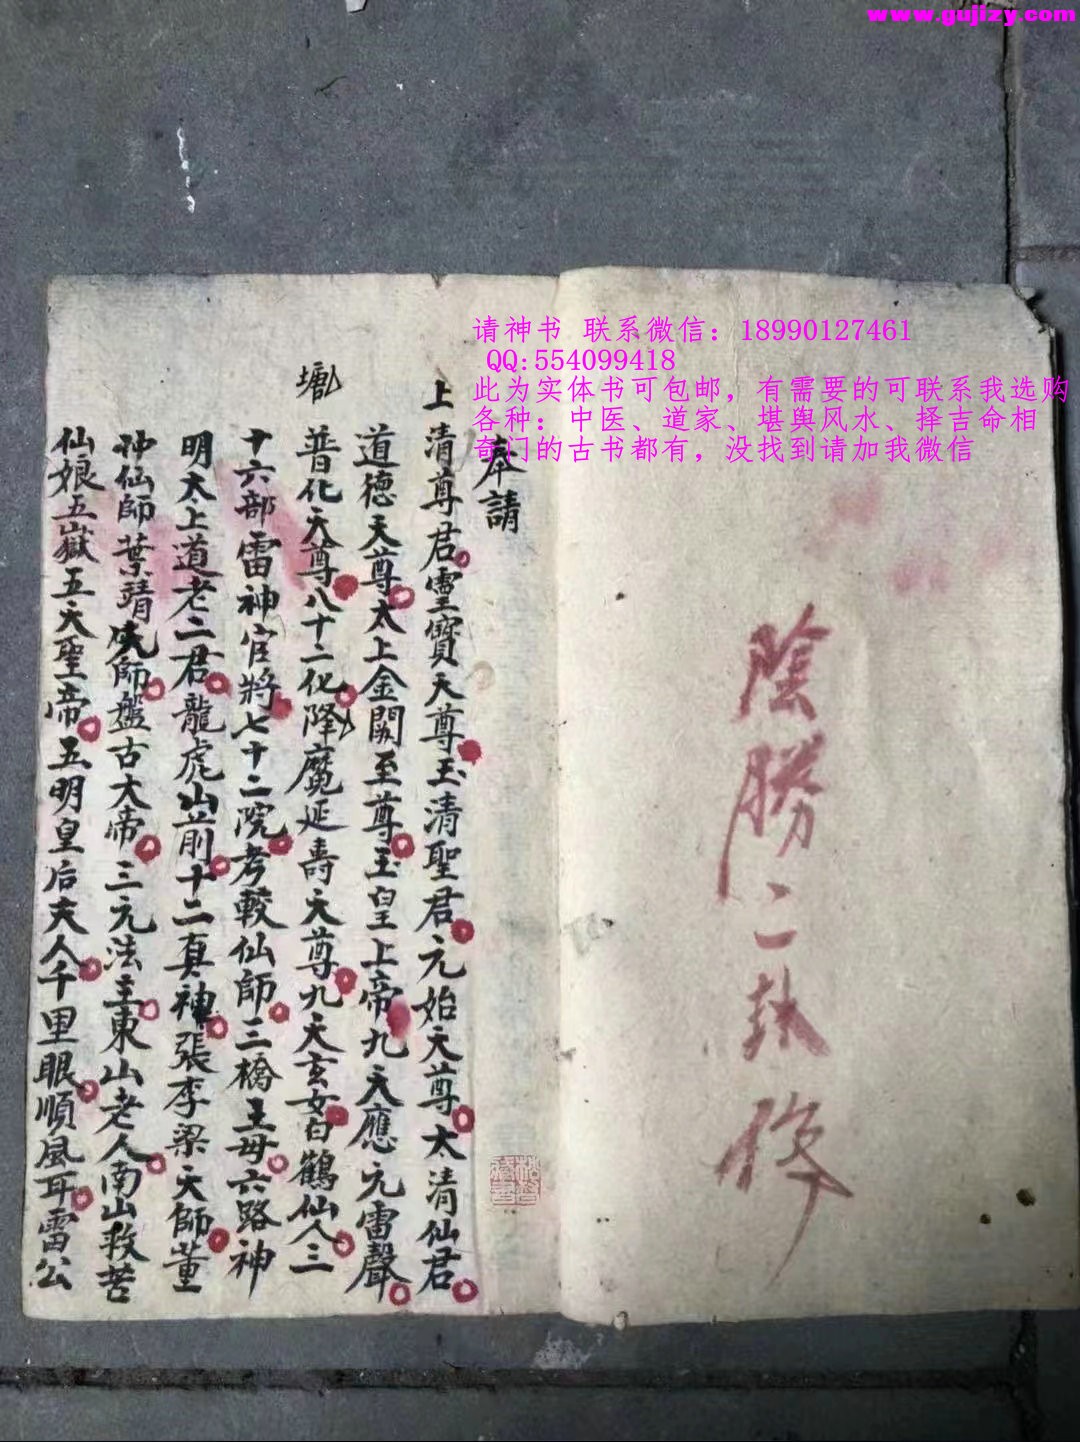 www.gujizy.com
请神书 联系微信：18990127461
QQ:554099418
此为实体书可包邮，有需要的可联系我选购
各种：中医、道家、堪舆风水、择吉命相
奇门的古书都有，没找到请加我微信
陰勝二
奉請
上清尊君靈寶天尊玉清聖君元始天尊太清仙君
道德天尊太上金闕至尊玉皇上帝九天應元雷聲
普化天尊八十二化降魔延壽天尊九天玄女白鶴仙人三
十六部雷神官將七十二院考較仙師三橋王母六路神
明太上道老二君龍虎山前十二真神張李梁天師董
神仙師葉靖師盤古大帝三元法主東山老人南山救苦
仙娘五嶽五天聖帝五明皇后夫人千里眼順風耳雷公